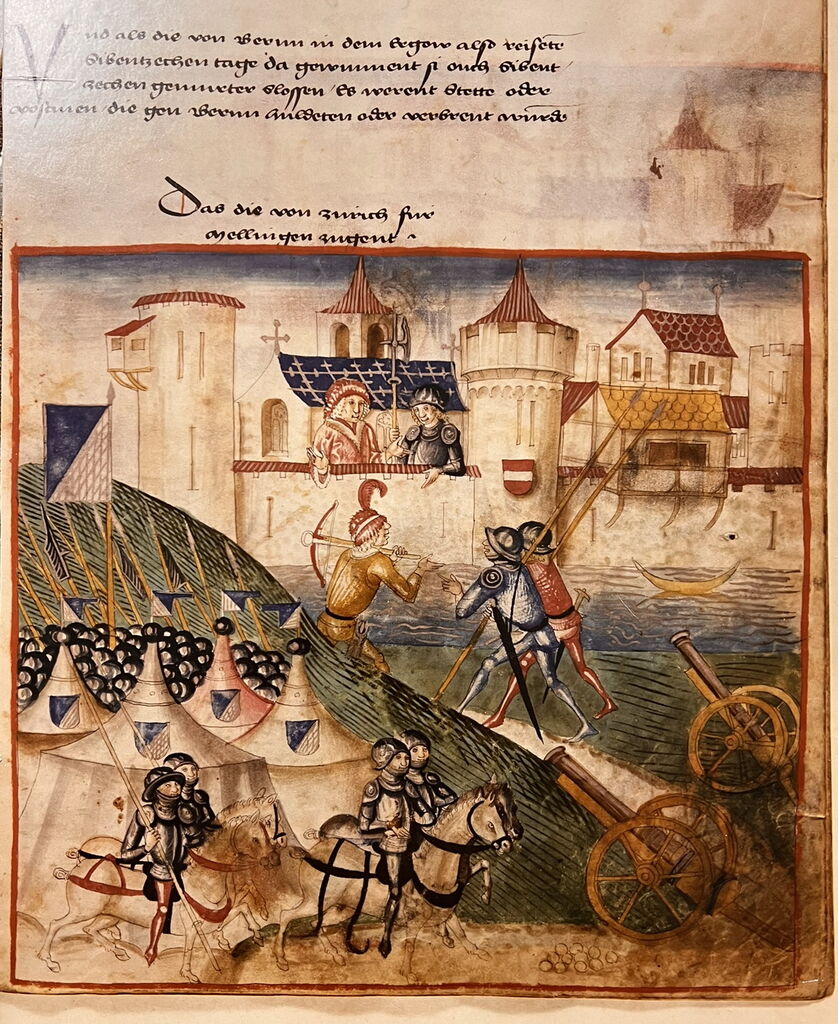 Und als die von Bernn in dem Ergow also reisete
Sibentzechen tage da gewunnent si ouch Sibent
zechen gemurter Slossen / Es werent Stette oder
vöstinen / die gen Bernn huldeten oder verbrent wurdē
Das die von zürich fur
Mellingen zugent